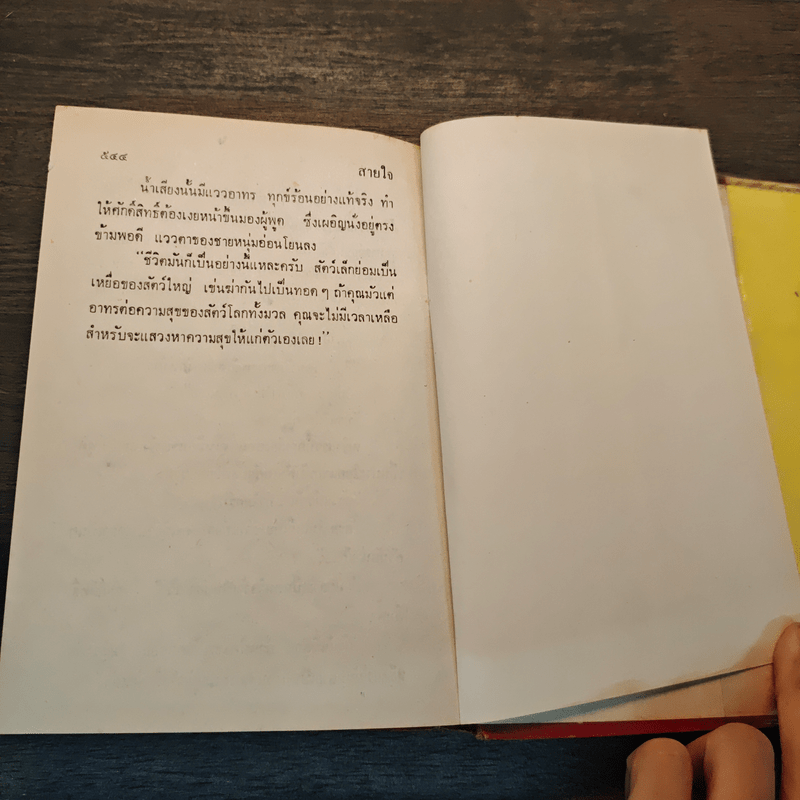 ๕๔๔
สายใจ
น้ำเสียงนั้นมีแววอาทร ทุกข์ร้อนอย่างแท้จริง ทำ
ให้ศักดิ์สิทธิ์ต้องเงยหน้าขึ้นมองผู้พูด ซึ่งเผอิญนั่งอยู่ตรง
ข้ามพอดี แววตาของชายหนุ่มอ่อนโยนลง
“ชีวิตมันก็เป็นอย่างนี้แหละครับ สัตว์เล็กย่อมเป็น
เหยื่อของสัตว์ใหญ่ เข่นฆ่ากันไปเป็นทอด ๆ ถ้าคุณมัวแต่
อาทรต่อความสุขของสัตว์โลกทั้งมวล คุณจะไม่มีเวลาเหลือ
สำหรับจะแสวงหาความสุขให้แก่ตัวเองเลย !”